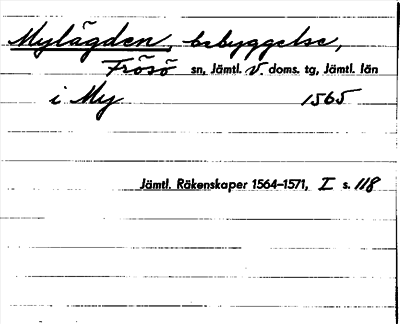 Mylägden, bebyggelse,
Frösö sn, Jämtl. v. doms. tg, Jämtl. län
i My 1565
Jämtl. Räkenskaper 1564–1571, I s. 118